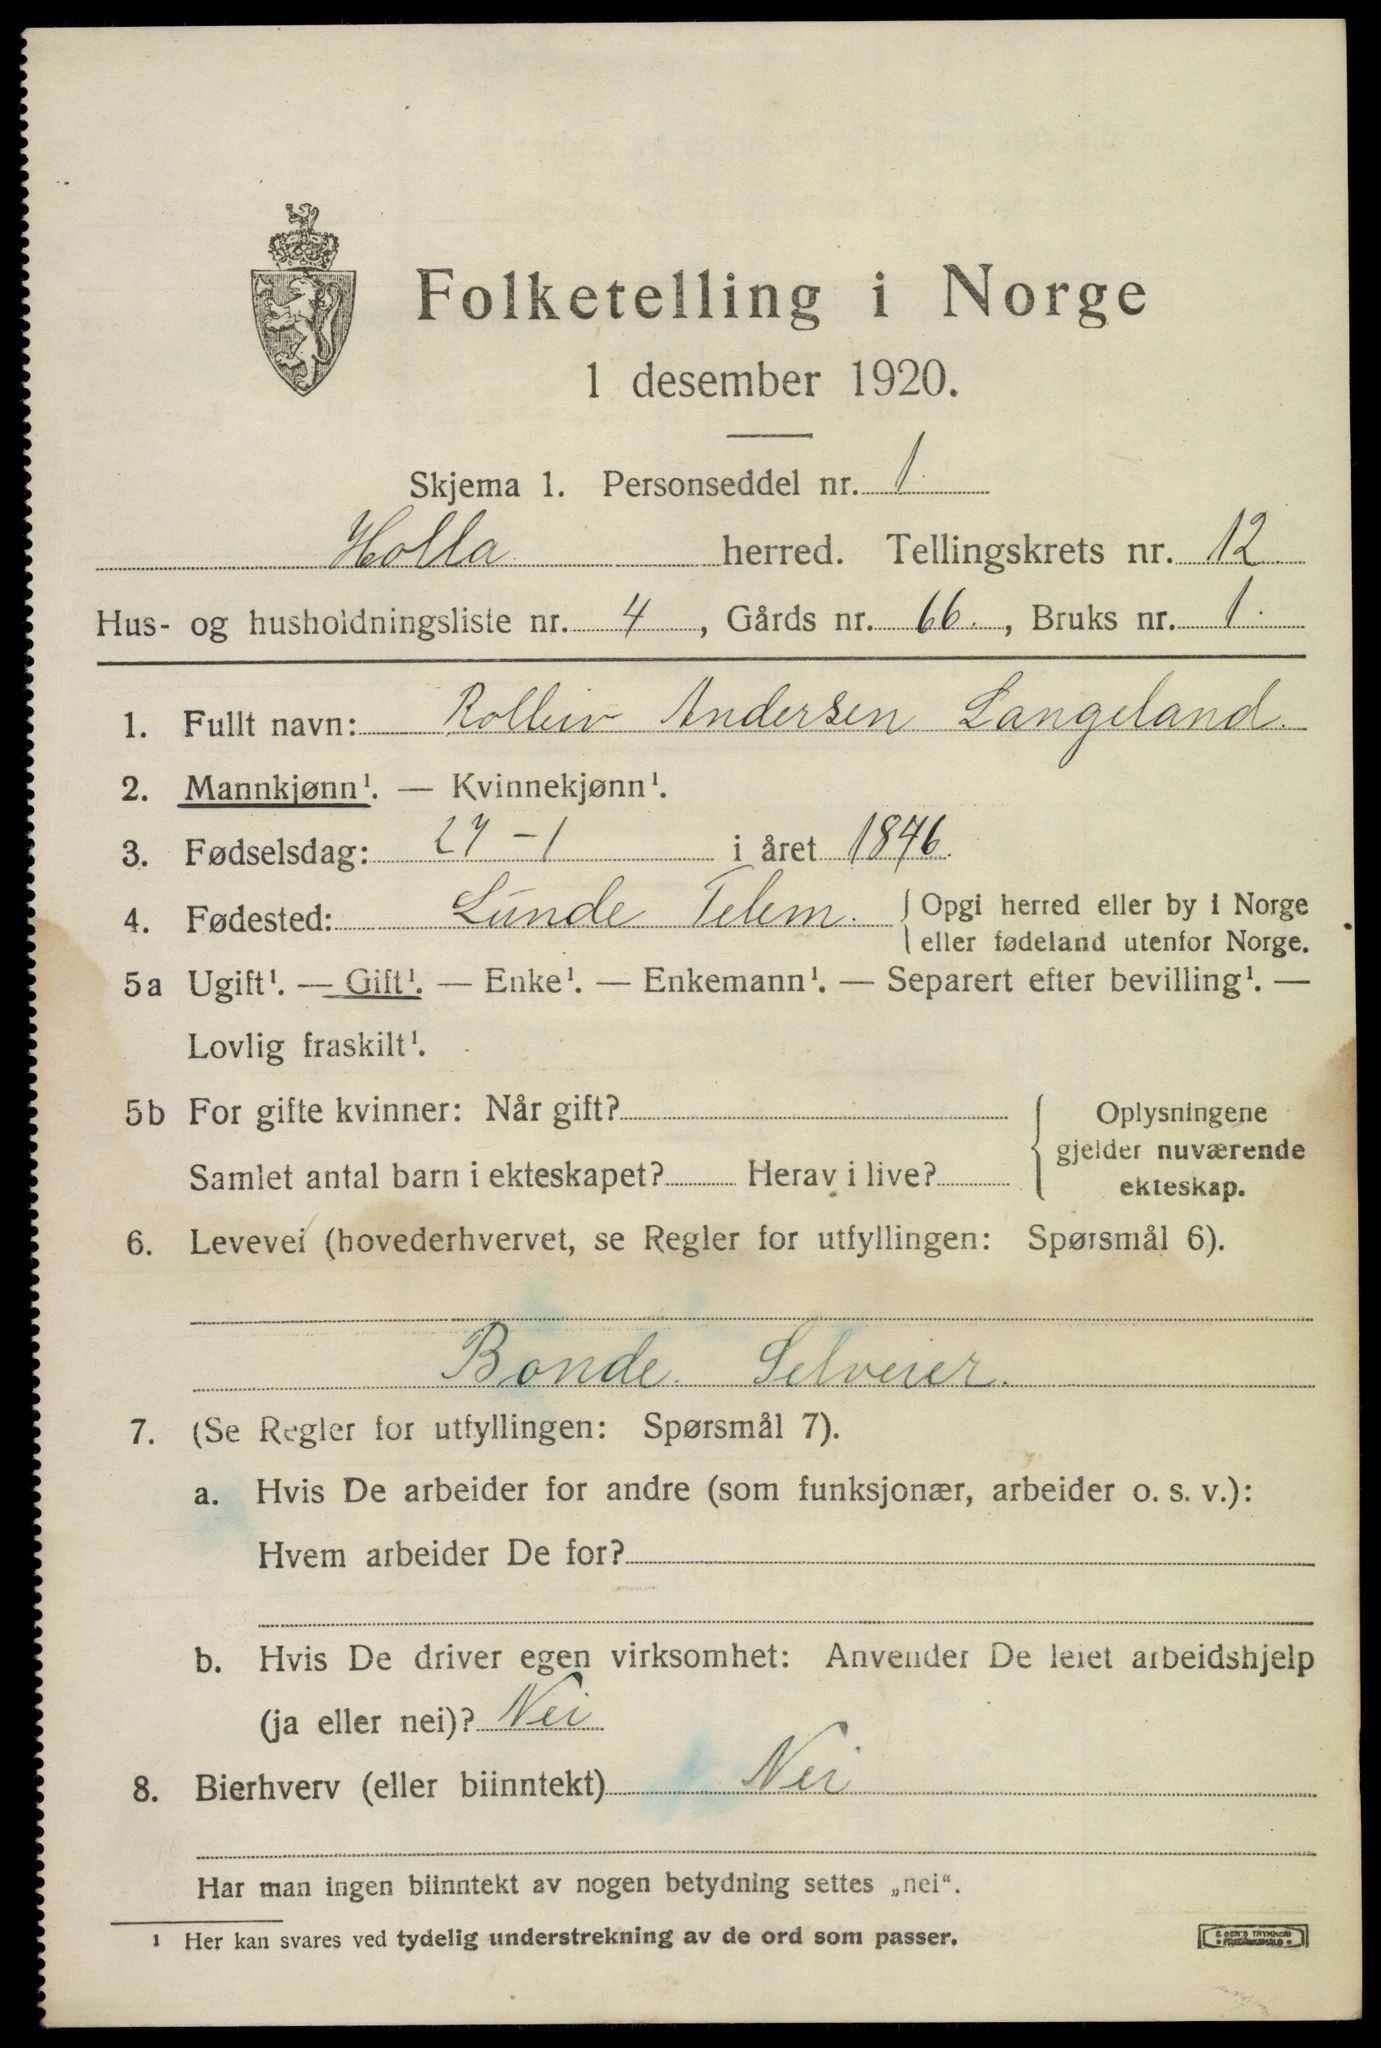 Folketelling i Norge
1 desember 1920.
Skjema 1. Personseddel nr. 1
Holla herred. Tellingskrets nr. 12
Hus- og husholdningsliste nr. 4, Gårds nr. 66., Bruks nr. 1.
1. Fullt navn: Rolleiv Andersen Langeland.
2. Mannkjønn¹. — Kvinnekjønn¹.
3. Fødselsdag: 27-1 i året 1846.
4. Fødested: Lunde Telem. { Opgi herred eller by i Norge
eller fødeland utenfor Norge.
5a Ugift¹. — Gift¹. — Enke¹. — Enkemann¹. — Separert efter bevilling¹. —
Lovlig fraskilt¹.
5b For gifte kvinner: Når gift? { Oplysningene
gjelder nuværende
Samlet antal barn i ekteskapet? Herav i live? ekteskap.
6. Levevei (hovederhvervet, se Regler for utfyllingen: Spørsmål 6).
Bonde. Selveier.
7. (Se Regler for utfyllingen: Spørsmål 7).
a. Hvis De arbeider for andre (som funksjonær, arbeider o. s. v.):
Hvem arbeider De for?
b. Hvis De driver egen virksomhet: Anvender De leiet arbeidshjelp
(ja eller nei)? Nei
8. Bierhverv (eller biinntekt) Nei
Har man ingen biinntekt av nogen betydning settes „nei“.
¹ Her kan svares ved tydelig understrekning av de ord som passer.